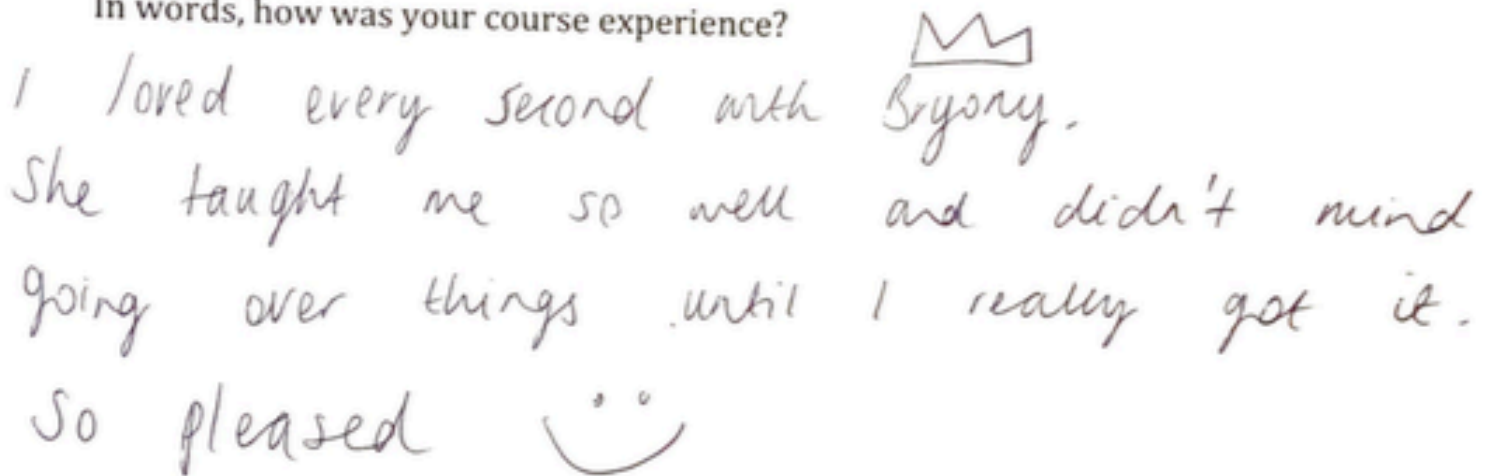 In words, how was your course experience?
I loved every second with Bryony.
She taught me so well and didn't mind
going over things until I really got it.
So pleased